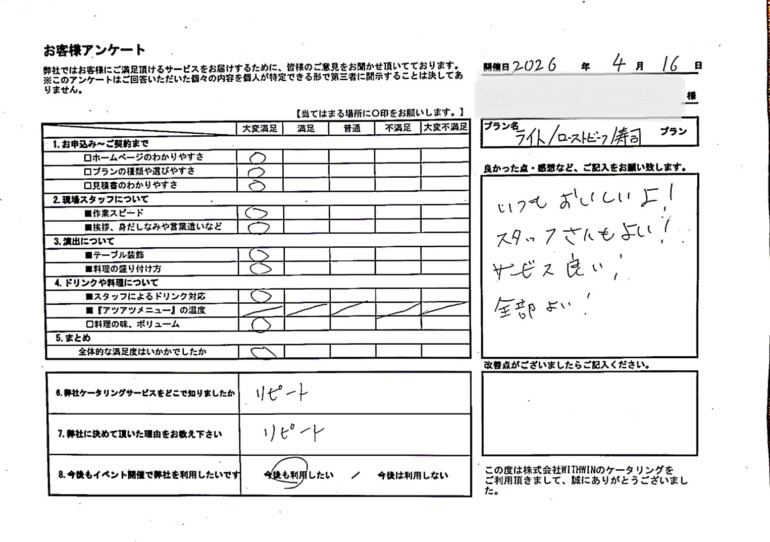 お客様アンケート
弊社ではお客様にご満足頂けるサービスをお届けするために、皆様のご意見をお聞かせ頂いております。
※このアンケートはご回答いただいた個々の内容を個人が特定できる形で第三者に開示することは決してあ
りません。
開催日 2026 年 4 月 16 日
様
プラン名
ライト/ローストビーフ/寿司 プラン
【当てはまる場所に○印をお願いします。】
大変満足 満足 普通 不満足 大変不満足
1.お申込み～ご契約まで
□ホームページのわかりやすさ ○
□プランの種類や選びやすさ ○
□見積書のわかりやすさ ○
2.現場スタッフについて
■作業スピード ○
■挨拶、身だしなみや言葉遣いなど ○
3.演出について
■テーブル装飾 ○
■料理の盛り付け方 ○
4.ドリンクや料理について
■スタッフによるドリンク対応 ○
■『アツアツメニュー』の温度
□料理の味、ボリューム ○
5.まとめ
全体的な満足度はいかかでしたか ○
良かった点・感想など、ご記入をお願い致します。
いつもおいしいよ!
スタッフさんもよい!
サービス良い!
全部よい!
改善点がございましたらご記入ください。
6.弊社ケータリングサービスをどこで知りましたか リピート
7.弊社に決めて頂いた理由をお教え下さい リピート
8.今後もイベント開催で弊社を利用したいです 今後も利用したい / 今後は利用しない
この度は株式会社WITHWINのケータリングを
ご利用頂きまして、誠にありがとうございまし
た。